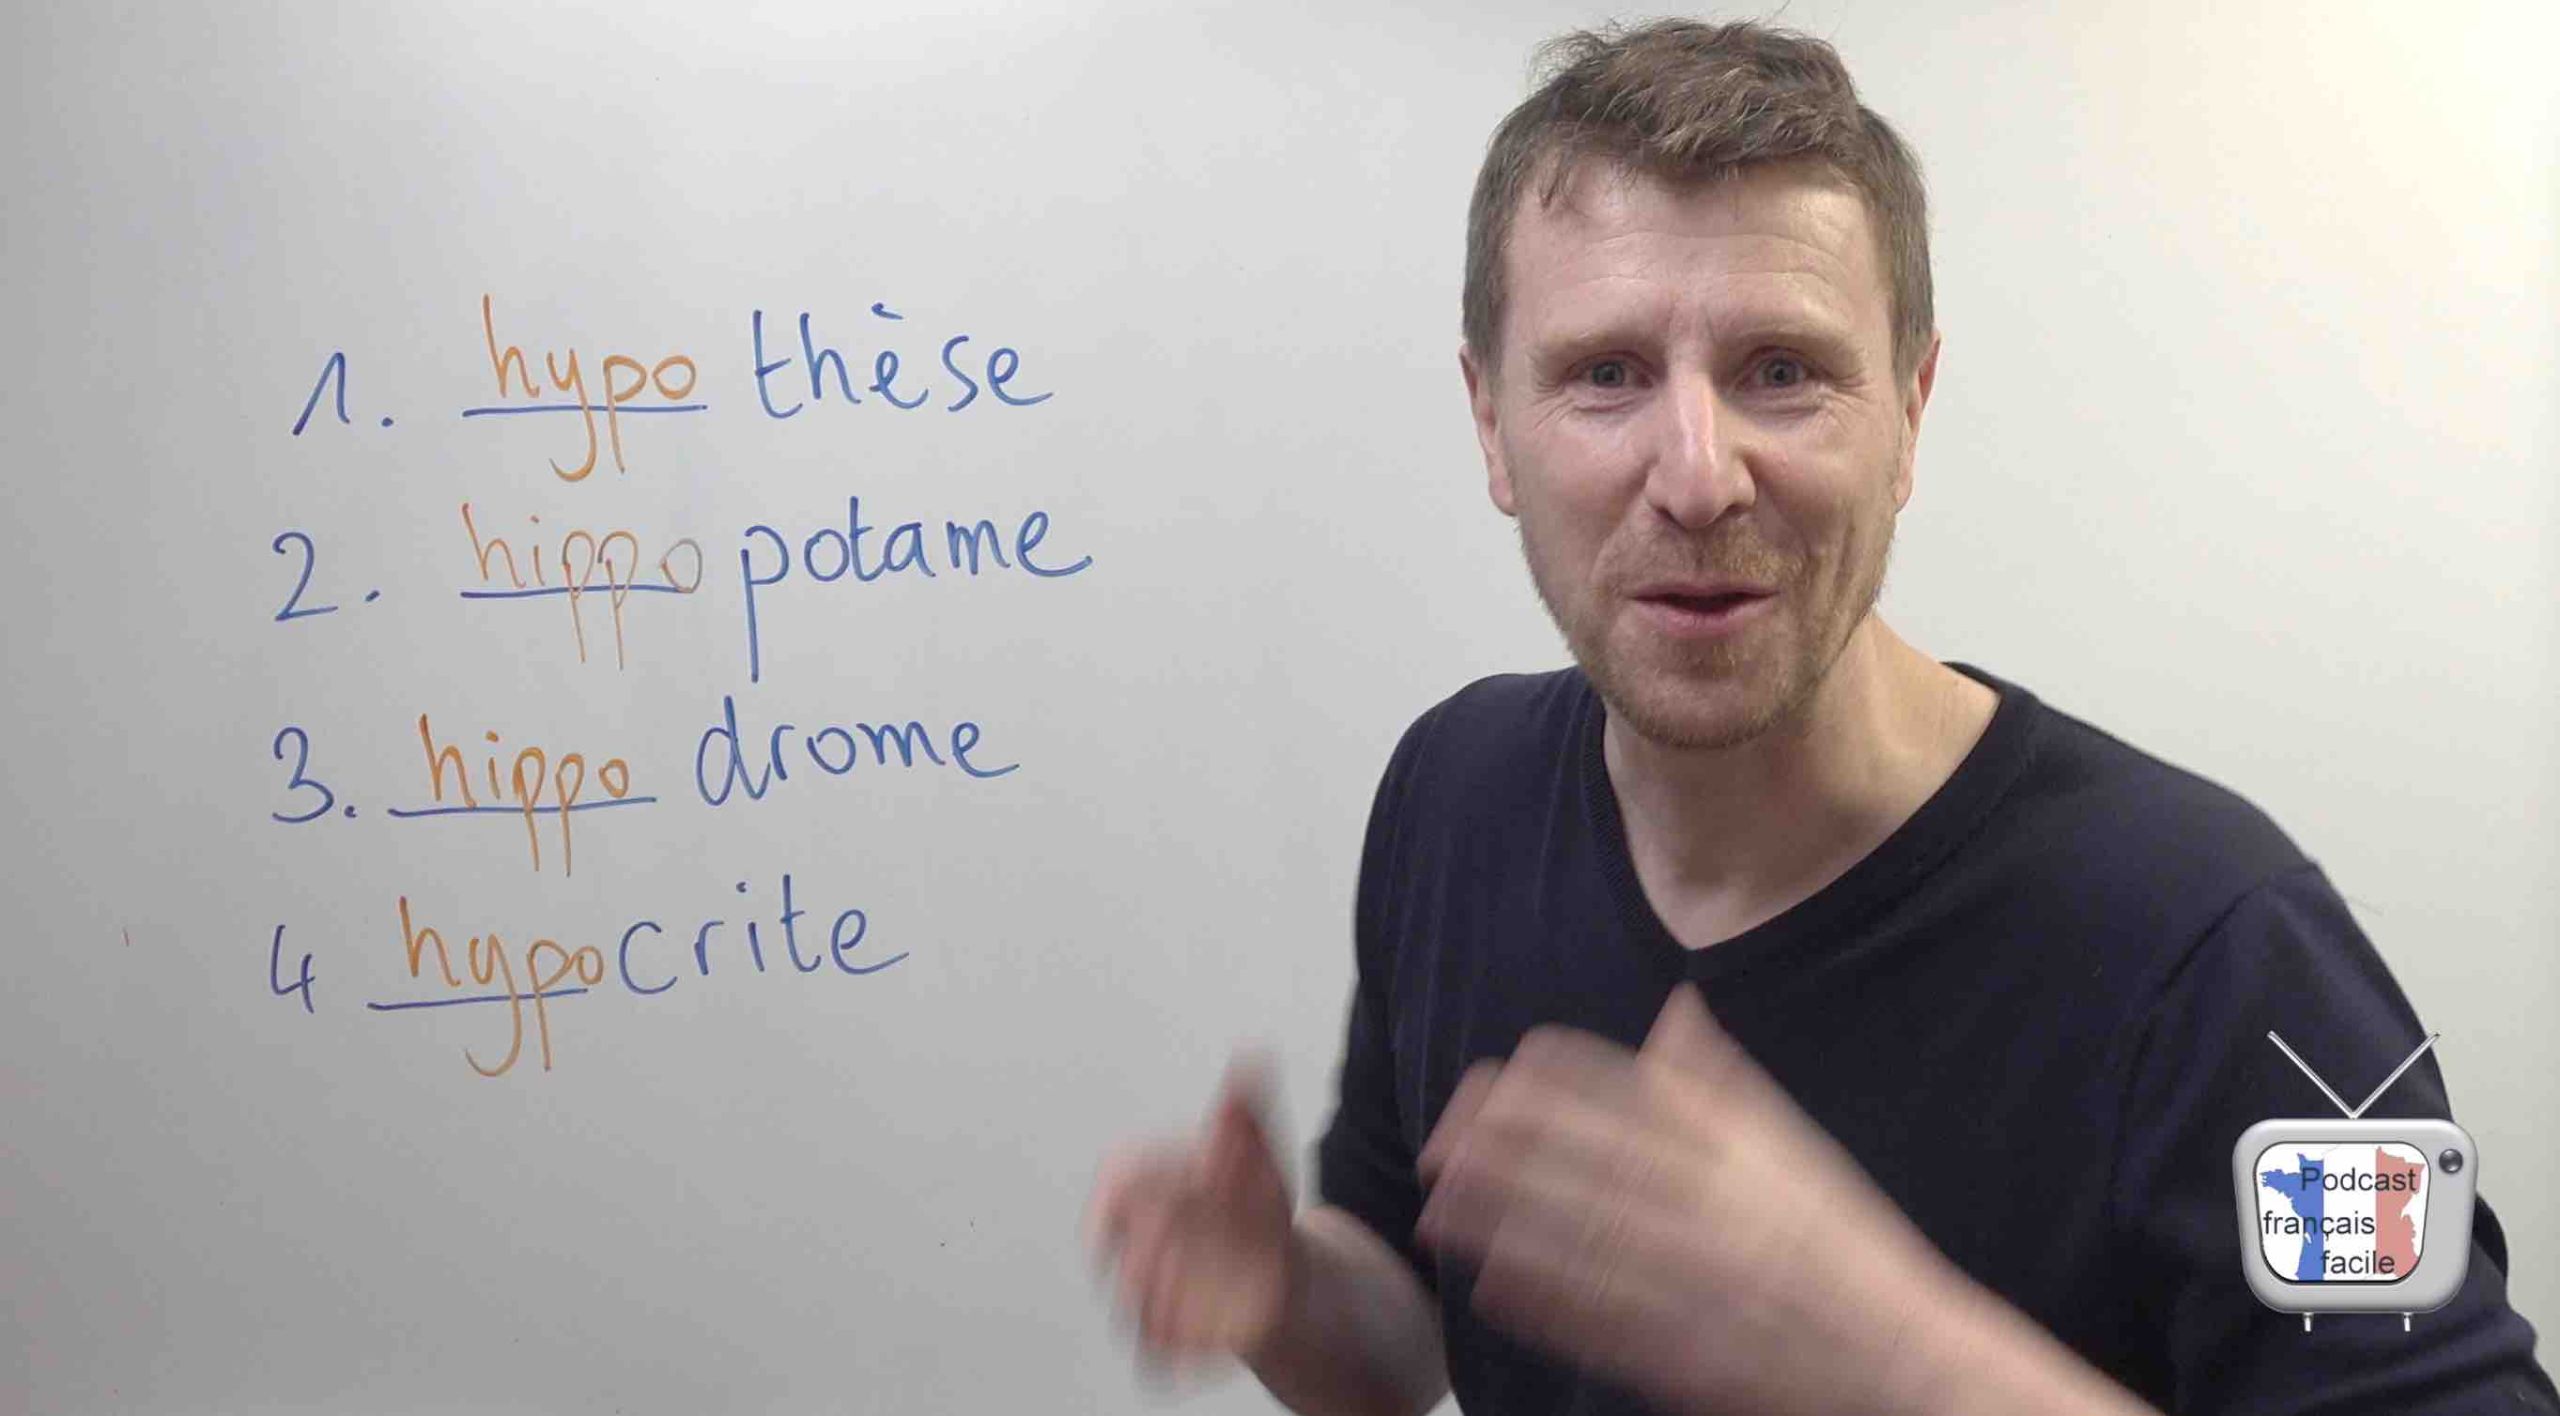 1. hypo thèse
2. hippo potame
3. hippo drome
4 hypocrite
Podcast
français
facile